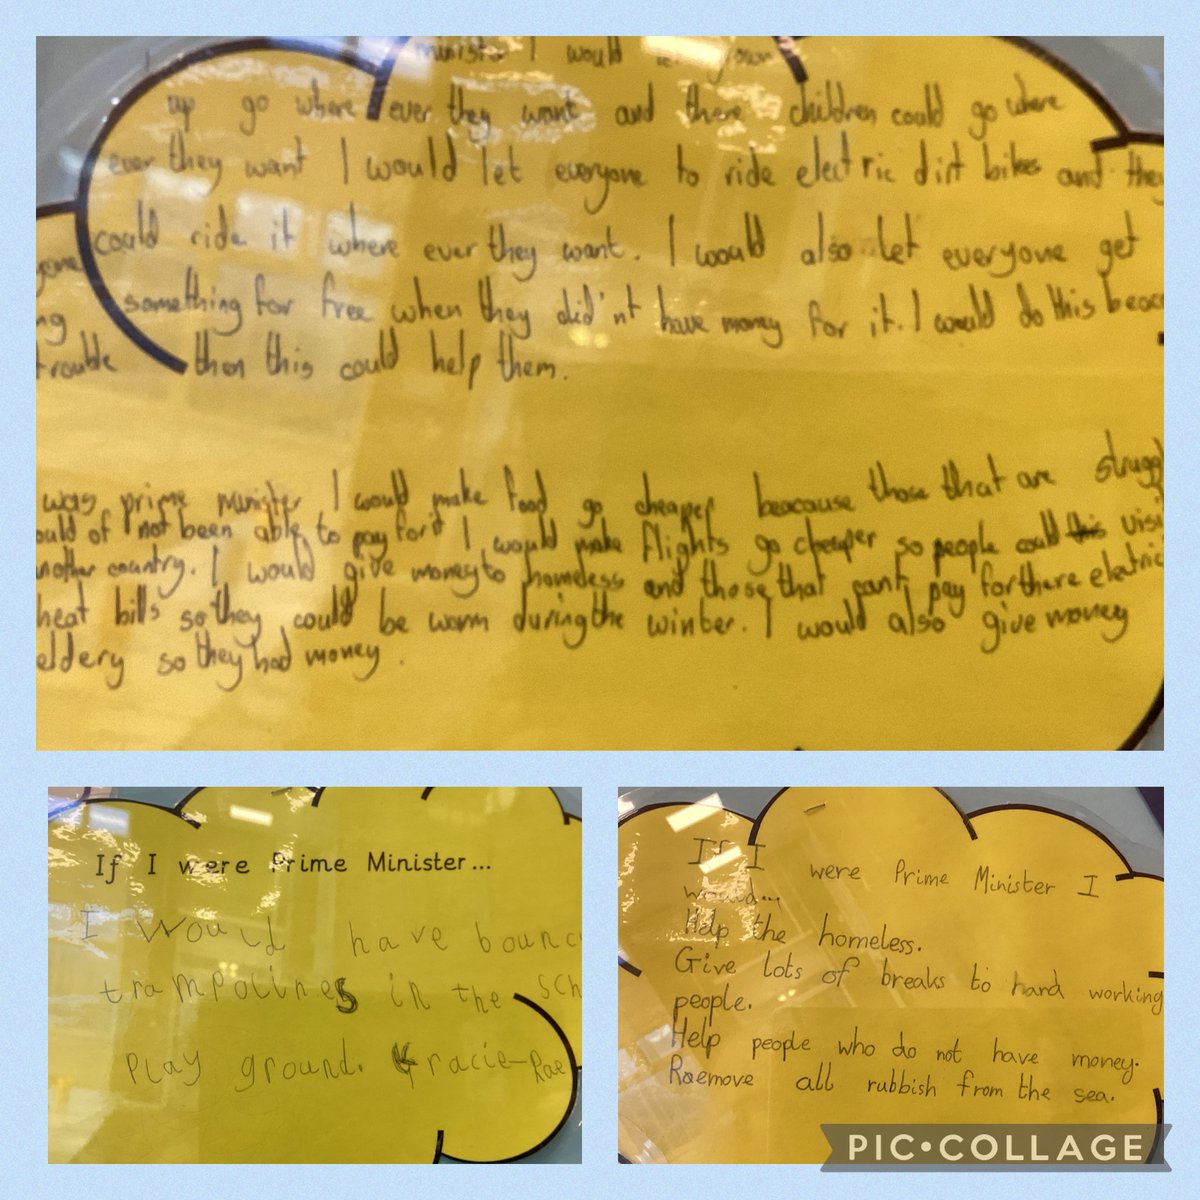 minister I would
up go where ever they want and there children could go where
ever they want I would let everyone to ride electric dirt bikes and they
could ride it where ever they want. I would also let everyone get
something for free when they did'nt have money for it. I would do this
trouble then this could help them.
was prime minister I would make food go cheaper beacause those that are
of not been able to pay for it I would make flights go cheaper so people could this
another country. I would give money to homeless and those that cant pay for there
heat bills so they could be warm during the winter. I would also give money
eldery so they had money.
If I were Prime Minister...
I would have
trampolines in the
play ground. Gracie-Rae
If I were Prime Minister I
would...
Help the homeless.
Give lots of breaks to hard working
people.
Help people who do not have money.
Raemove all rubbish from the sea.
PIC•COLLAGE